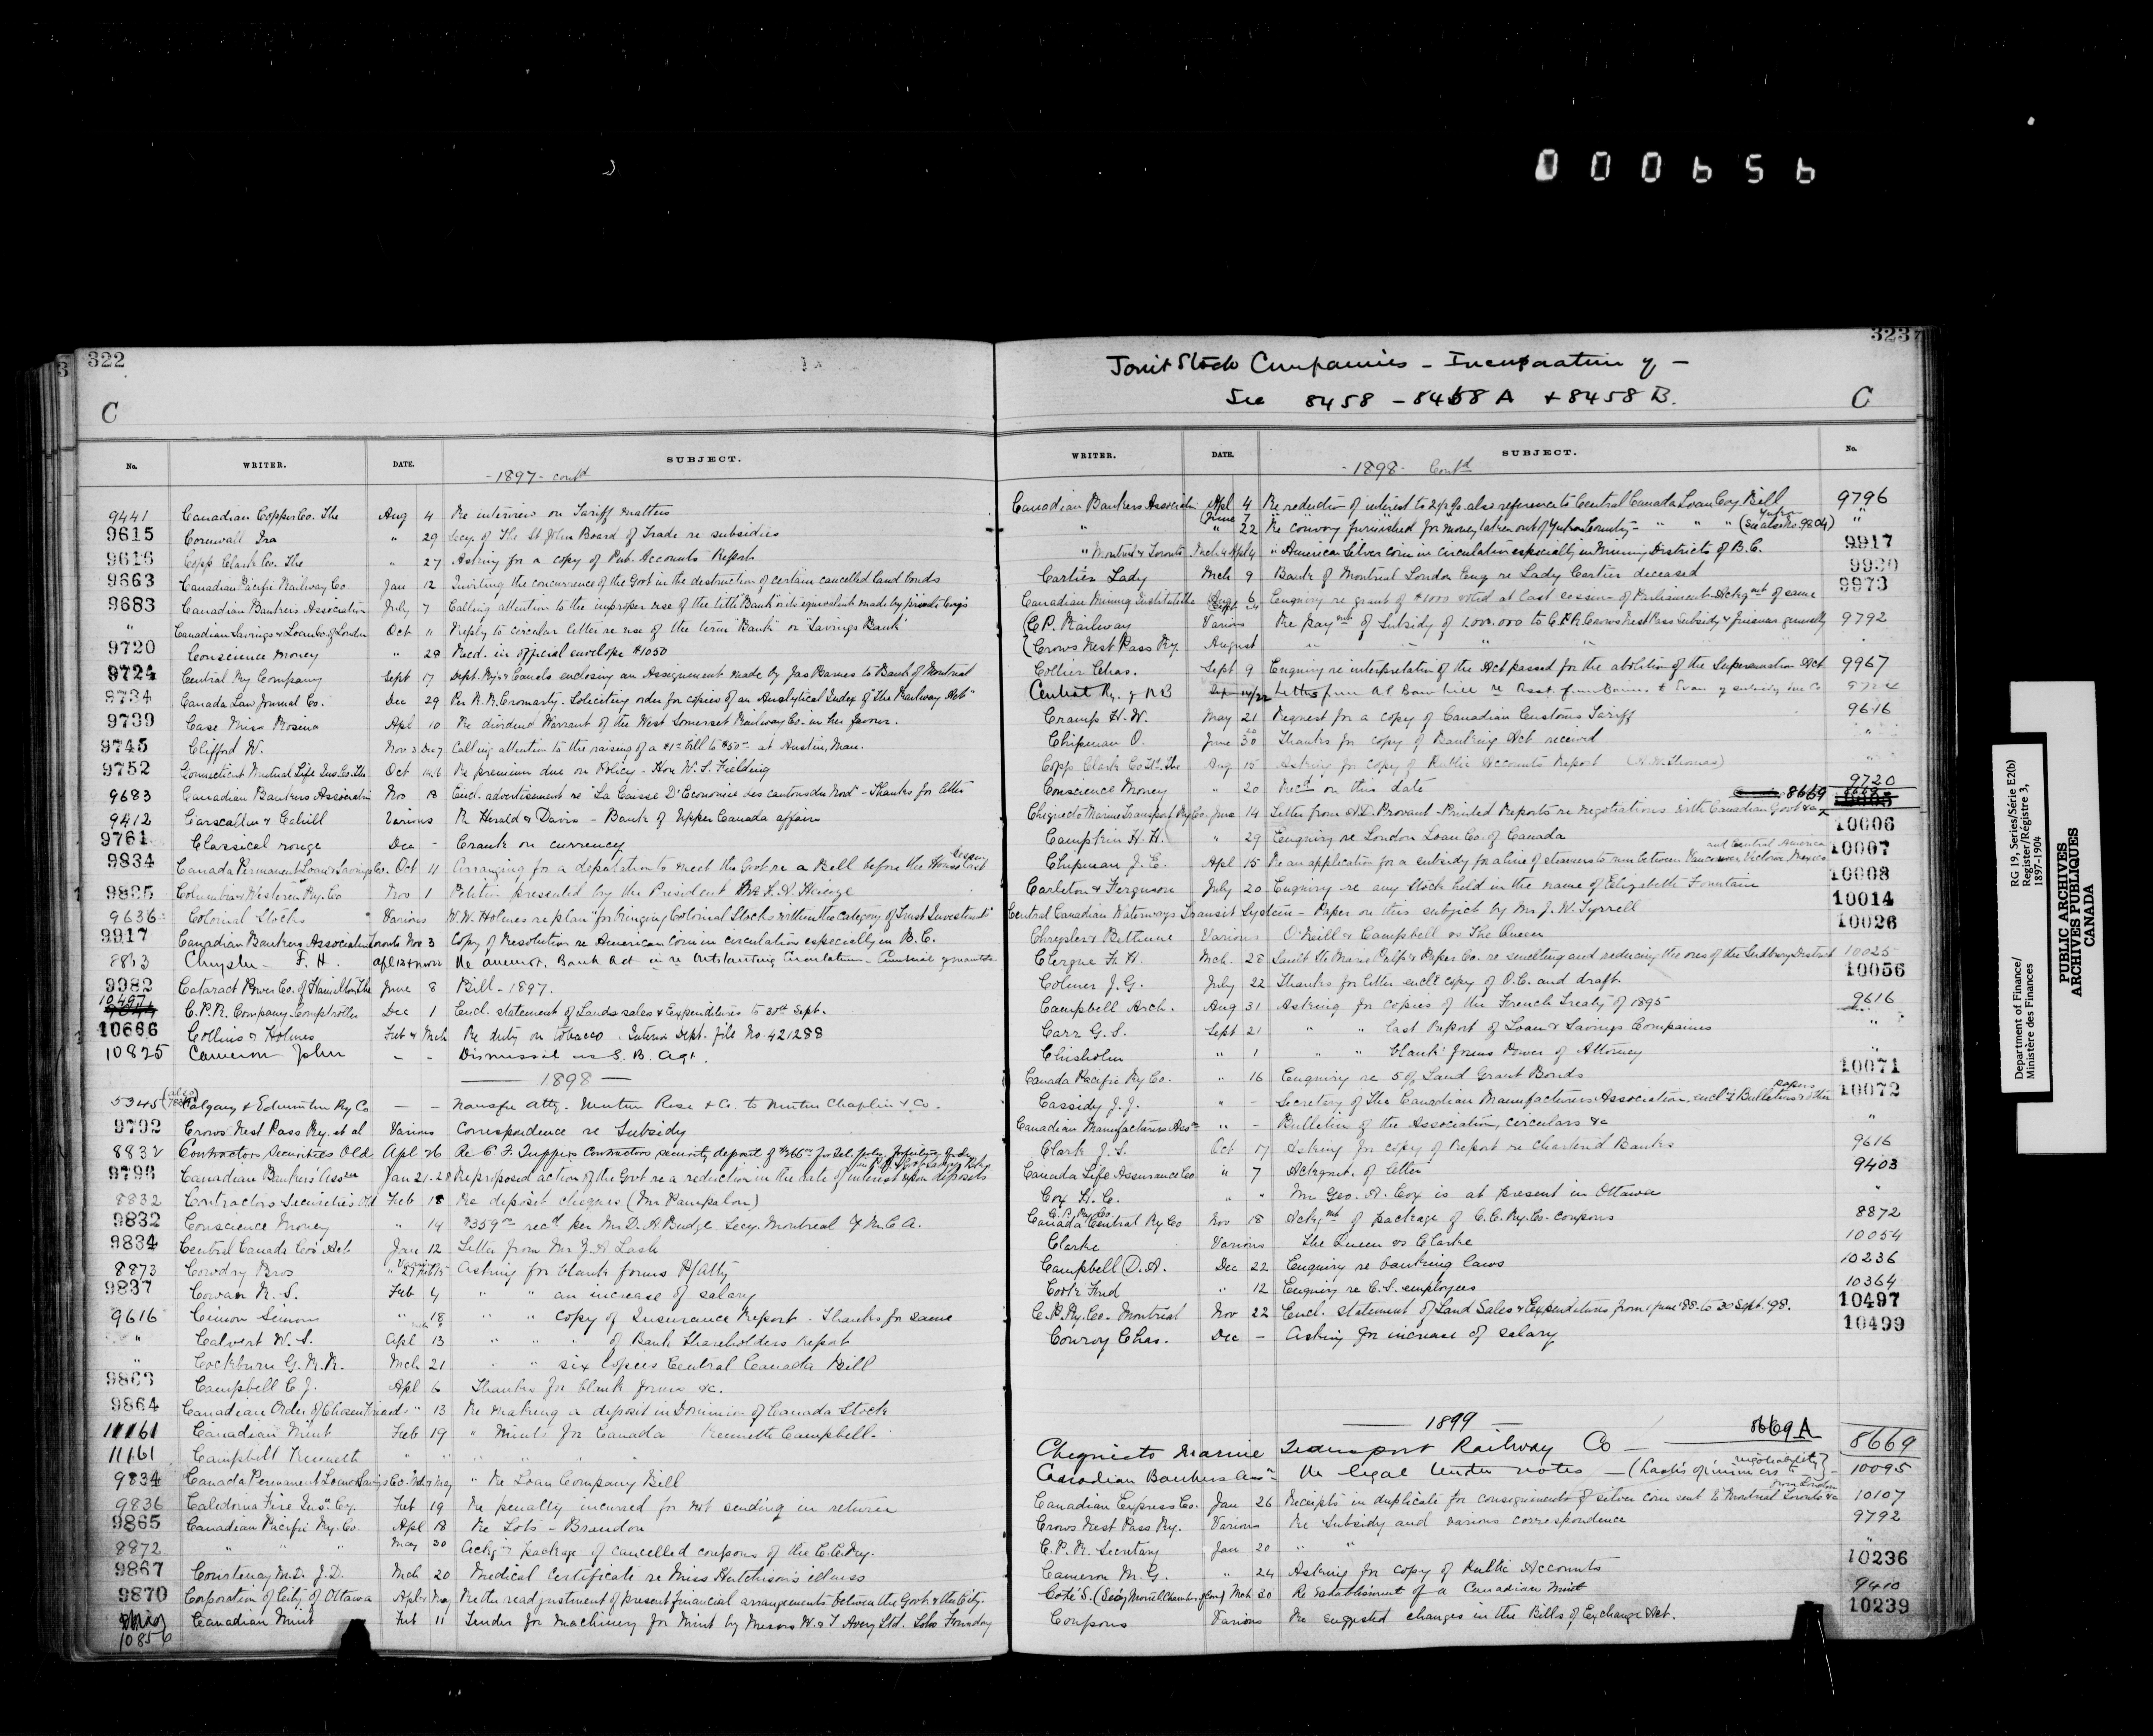 000656
322
C
No. WRITER. DATE. SUBJECT.
- 1897 - contd
9441 Canadian Copper Co. The Aug 4 Re interview on Tariff matters
9615 Cornwall Ira " 29 Secy. of The St John Board of Trade re subsidies
9616 Copp Clark Co. The " 27 Asking for a copy of Pub. Accounts Report
9663 Canadian Pacific Railway Co. Jan 12 Inviting the concurrence of the Govt in the destruction of certain cancelled land bonds
9683 Canadian Bankers Association July 7 Calling attention to the improper use of the title "Bank" or its equivalent made by private Coy's
" Canadian Savings & Loan Co. of London Oct 11 Reply to circular letter re use of the term "Bank" or "Savings Bank"
9720 Conscience Money " 28 Recd. in official envelope $1050
9724 Central Ry Company Sept 17 Dept. Rys & Canals enclosing an Assignment made by Jas Barnes to Bank of Montreal
9734 Canada Law Journal Co. Dec 29 Per R. R. Cromarty. Soliciting order for copies of an Analytical Index of "The Railway Act"
9739 Case Miss Rosina Apl 10 Re dividend Warrant of the West Somerset Railway Co. in her favour.
9745 Clifford W. Nov 3 Dec 7 Calling attention to the raising of a $1 bill to $50 at Austin, Man.
9752 Connecticut Mutual Life Ins. Co. The Oct 14.16 Re premium due on Policy - Hon W. S. Fielding
9683 Canadian Bankers Association Nov 18 Encl. advertisement re "La Caisse D'Economie des cantons du Nord" - Thanks for letter
9412 Carscallen & Cahill Various Re Herald & Davis - Bank of Upper Canada affairs
9761 Classical rouge Dec - Crank on currency
9834 Canada Permanent Loan & Savings Co. Oct 11 Arranging for a deputation to meet the Govt re a Bill before the House last Session
9835 Columbia & Western Ry. Co Nov 1 Petition presented by the President Mr F. A. Heinze
9636 Colonial Stocks Various W. W. Holmes re plan "for bringing Colonial Stocks within the category of Trust Investments"
9917 Canadian Bankers Association Toronto Nov 3 Copy of Resolution re American coin in circulation especially in B.C.
8873 Chrysler F. H. Re amendt. Bank Act in re Outstanding Circulation
9982 Cataract Power Co. of Hamilton The June 8 Bill - 1897.
10497 C.P.R. Company Comptroller Dec 1 Encl. statement of Lands sales & Expenditures to 30th Sept.
10666 Collins & Holmes Feb & Mch Re duty on tobacco. Interior Dept. file No. 421288
10825 Cameron John - - Dismissal as S. B. Agt.
— 1898 —
5345 Calgary & Edmonton Ry Co — - Transfer atty. Morton Rose & Co. to Morton Chaplin & Co.
9792 Crows Nest Pass Ry. et al Various Correspondence re Subsidy
8832 Contractors Securities Old Apl 26 Re C. F. Tupper Contractors security deposit
9796 Canadian Bankers' Assocn Jan 21.28 Re proposed action of the Govt re a reduction in the rate of interest upon deposits
8832 Contractors Securities Old Feb 18 Re deposit cheques (Mr Pampalon)
9832 Conscience Money " 14 $359 recd per Mr D. A. Budge Secy. Montreal Y. M. C. A.
9834 Central Canada Co's Act Jan 12 Letter from Mr Z. A. Lash
8873 Cowdry Bros Asking for blank forms P/Atty
9837 Cowan R. S. Feb 4 " " an increase of salary
9616 Cimon Simon " 18 " " copy of Insurance Report. Thanks for same
" Calvert W. S. Apl 13 " " " of Bank Shareholders Report
" Cockburn G. R. R. Mch 21 " " six copies Central Canada Bill
9863 Campbell C. J. Apl 6 Thanks for blank forms &c.
9864 Canadian Order of Chosen Friends " 13 Re making a deposit in Dominion of Canada Stock
11161 Canadian Mint Feb 19 " Mint for Canada Kenneth Campbell.
11161 Campbell Kenneth " " " " "
9834 Canada Permanent Loan & Savings Co. " Re Loan Company Bill
9836 Caledonia Fire Insce Coy. Feb 19 Re penalty incurred for not sending in return
9865 Canadian Pacific Ry. Co. Apl 18 Re Lots - Brandon
8872 " " " May 30 Ackgt package of cancelled coupons of the C. C. Ry.
9867 Courtenay M.D. J. D. Mch 20 Medical Certificate re Miss Hutchison's illness
9870 Corporation of City of Ottawa Apl & May Re the readjustment of present financial arrangements between the Govt & the City.
10856 Canadian Mint Feb 11 Tender for Machinery for Mint by Messrs W. & T. Avery Ltd. Soho Foundry
323
Joint Stock Companies - Incorporation of -
See 8458 - 8458 A + 8458 B.
C
WRITER. DATE. SUBJECT. No.
- 1898 - Contd
Canadian Bankers Association Apl 4 Re reduction of interest to 2½% also reference to Central Canada Loan Coy Bill 9796
" June " 22 Re convoy furnished for money taken out of Yukon Country - " " " (See also No. 9804) "
" Montreal & Toronto Mch & Apl 4 " American Silver coin in circulation especially in Mining Districts of B.C. 9917
Cartier Lady Mch 9 Bank of Montreal London Eng re Lady Cartier deceased 9930
Canadian Mining Institute The Aug 6 Sept Enquiry re grant of $1000 voted at last session of Parliament - Ackgmt of same 9973
(C. P. Railway Various Re paymt of Subsidy of 1,000,000 to C.P.R. Crows Nest Pass Subsidy & finances generally 9792
(Crows Nest Pass Ry. August " " "
Collier Chas. Sept 9 Enquiry re interpretation of the Act passed for the abolition of the Superannuation Act 9967
Central Ry. of N B 9724
Cramp H. W. May 21 Request for a copy of Canadian Customs Tariff 9616
Chipman O. June 30 Thanks for copy of Banking Act received "
Copp Clark Co Ltd. The Aug 15 Asking for copy of Public Accounts Report (A. W. Thomas) "
Conscience Money " 20 Recd on this date 9720
Chignecto Marine Transport Ry Co. June 14 Letter from A. D. Provant - Printed Reports re negotiations with Canadian Govt &c 8669
Campkin H. H. " 29 Enquiry re London Loan Co. of Canada 10006
Chipman J. E. Apl 15 Re an application for a subsidy for a line of steamers to run between Vancouver, Victoria, Mexico and Central America 10007
Carleton & Ferguson July 20 Enquiry re any Stock held in the name of Elizabeth Fountain 10008
Central Canadian Waterways Transit System - Paper on this subject by Mr J. W. Tyrrell 10014
Chrysler & Bethune Various O'Neill & Campbell vs The Queen 10026
Clergue F. H. Mch. 28 Sault Ste Marie Pulp & Paper Co. re smelting and reducing the ores of the Sudbury District 10025
Colmer J. G. July 22 Thanks for letter encl copy of O.C. and draft 10056
Campbell Arch. Aug 31 Asking for copies of the French Treaty of 1895 9616
Carr G. S. Sept 21 " " last Report of Loan & Savings Companies "
Chisholm " 1 " " blank forms Power of Attorney "
Canada Pacific Ry Co. " 16 Enquiry re 5% Land Grant Bonds 10071
Cassidy J. J. " - Secretary of The Canadian Manufacturers Association, encl'g Bulletins & other papers 10072
Canadian Manufacturers Assn " - Bulletin of the Association, circulars &c "
Clark J. S. Oct 17 Asking for copy of Report re Chartered Banks 9616
Canada Life Assurance Co " 7 Ackgmt. of letter 9403
Cox H. C. " " Mr Geo. A. Cox is at present in Ottawa "
C. P. Ry Co. Canada Central Ry Co Nov 18 Ackgmt of package of C. C. Ry. Co. coupons 8872
Clarke Various The Queen vs Clarke 10054
Campbell D. A. Dec 22 Enquiry re banking laws 10236
Cook Fred " 12 Enquiry re C. S. employees 10364
C. P. Ry. Co. Montreal Nov 22 Encl. statement of Land Sales & Expenditures from 1 June '88 to 30 Sept. '98. 10497
Conroy Chas. Dec - Asking for increase of salary 10499
— 1899 —
Chignecto Marine Transport Railway Co — 8669 A 8669
Canadian Bankers Assn Re legal tender notes — (Lash's opinion as to negotiability) 10095
Canadian Express Co. Jan 26 Receipts in duplicate for consignments of silver coin sent to Montreal Toronto &c from London 10107
Crows Nest Pass Ry. Various Re Subsidy and various correspondence 9792
C. P. R. Secretary Jan 20 " " "
Cameron M. G. " 24 Asking for copy of Public Accounts 10236
Coté S. (Secy Montreal Chambre of Com) Mch 30 Re establishment of a Canadian Mint 9410
Coupons Various Re suggested changes in the Bills of Exchange Act. 10239
Department of Finance/
Ministère des Finances
RG 19, Series/Série E2(b)
Register/Régistre 3,
1897-1904
PUBLIC ARCHIVES
ARCHIVES PUBLIQUES
CANADA